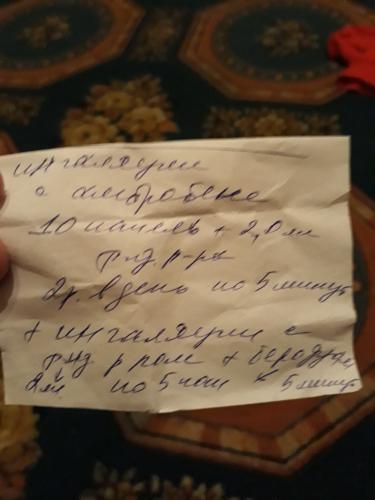 ингаляции
с амбробене
10 капель + 2,0 мл
физ. р-ра
2р. в день по 5 минут
+ ингаляции с
физ р ром + беродуал
2мл по 5 кап 5 минут